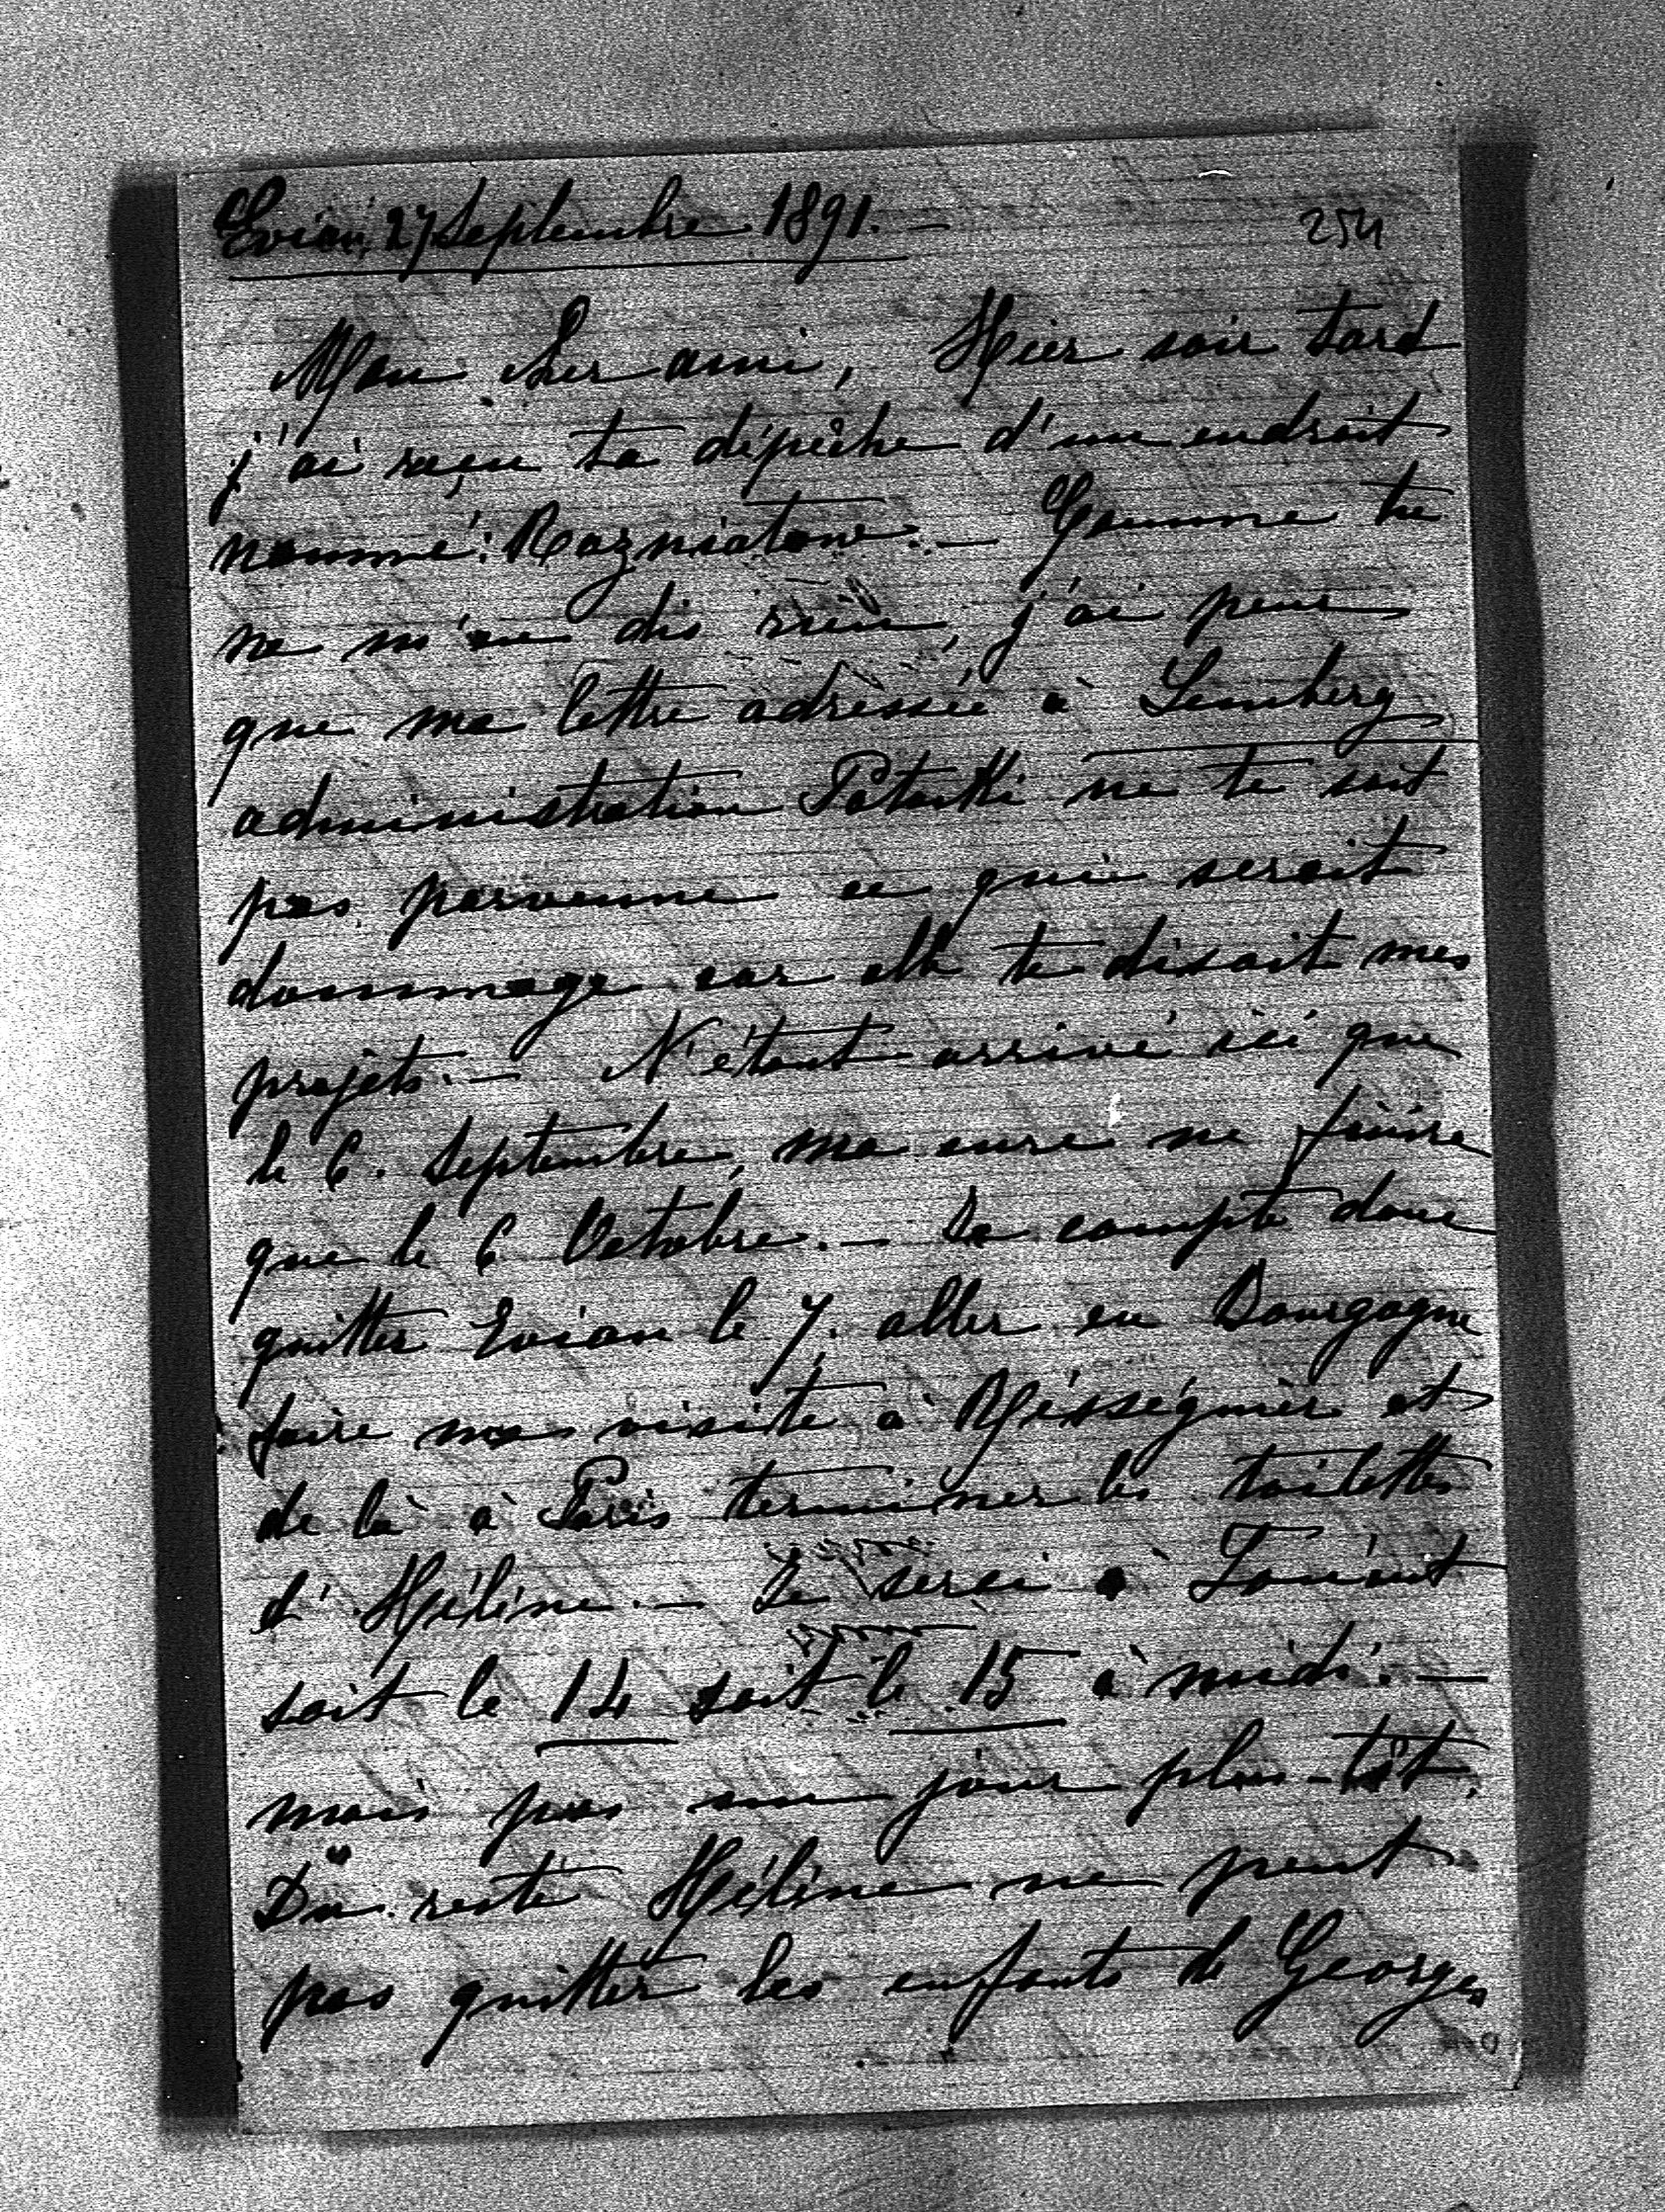 Evian, 27 Septembre 1891. —
254
Mon cher ami, Hier soir tard
j'ai reçu ta dépêche d'un endroit
nommé: Rozniatow. — Comme tu
ne m'en dis rien, j'ai peur
que ma lettre adressée à Lemberg
administration Potocki ne te soit
pas parvenue ce qui serait
dommage car elle te disait mes
projets. — N'étant arrivé ici que
le 6. Septembre, ma cure ne finira
que le 6 Octobre. — Je compte donc
quitter Evian le 7. aller en Bourgogne
faire ma visite à et
de là à Paris terminer les toilettes
d'Hélène. — Je serai à
soit le 14 soit le 15 à midi. —
mais pas un jour plus-tôt.
Du reste Hélène ne peut
pas quitter les enfants de Georges